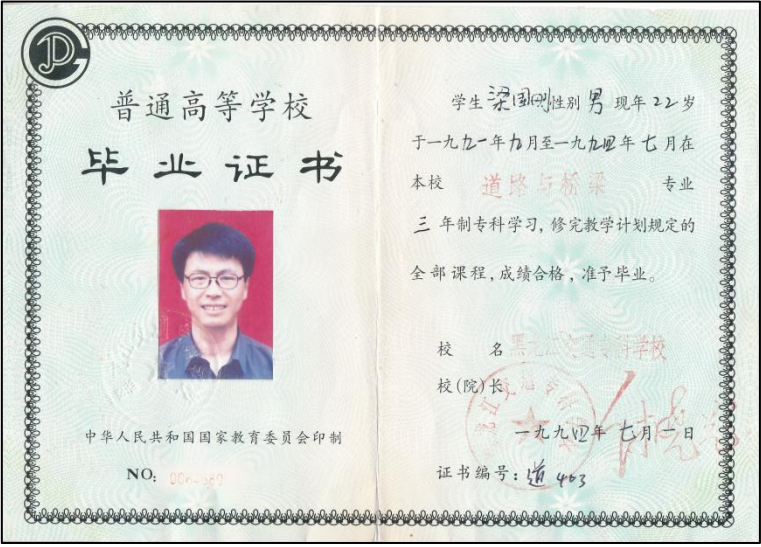 普通高等学校
毕业证书
中华人民共和国国家教育委员会印制
NO:
学生 梁国刚 性别 男 现年 22 岁
于一九九一年九月至一九九四年七月在
本校 道路与桥梁 专业
三 年制专科学习, 修完教学计划规定的
全部课程, 成绩合格, 准予毕业。
校 名 黑龙江交通专科学校
校(院)长
一九九四年 七月 一日
证书编号: 道 403